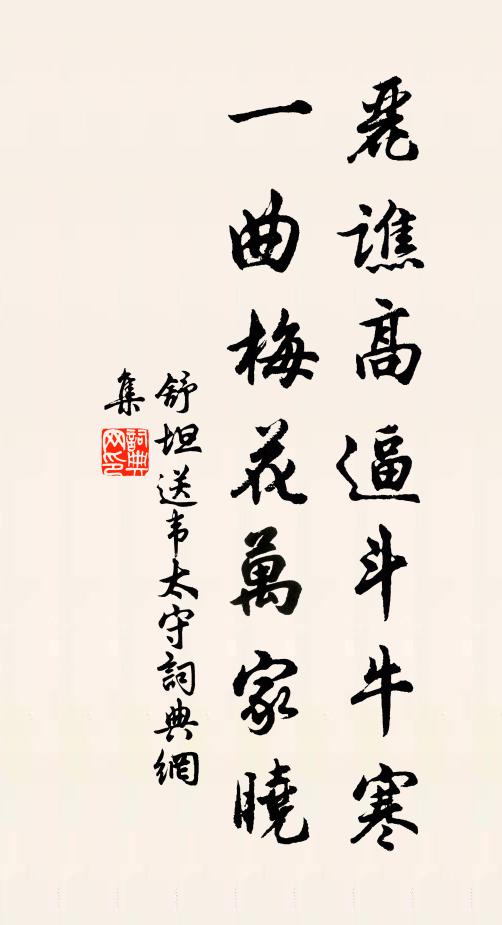 麗譙高逼斗牛寒
一曲梅花萬家曉
舒坦送韦太守詞典網
集
詞典网印